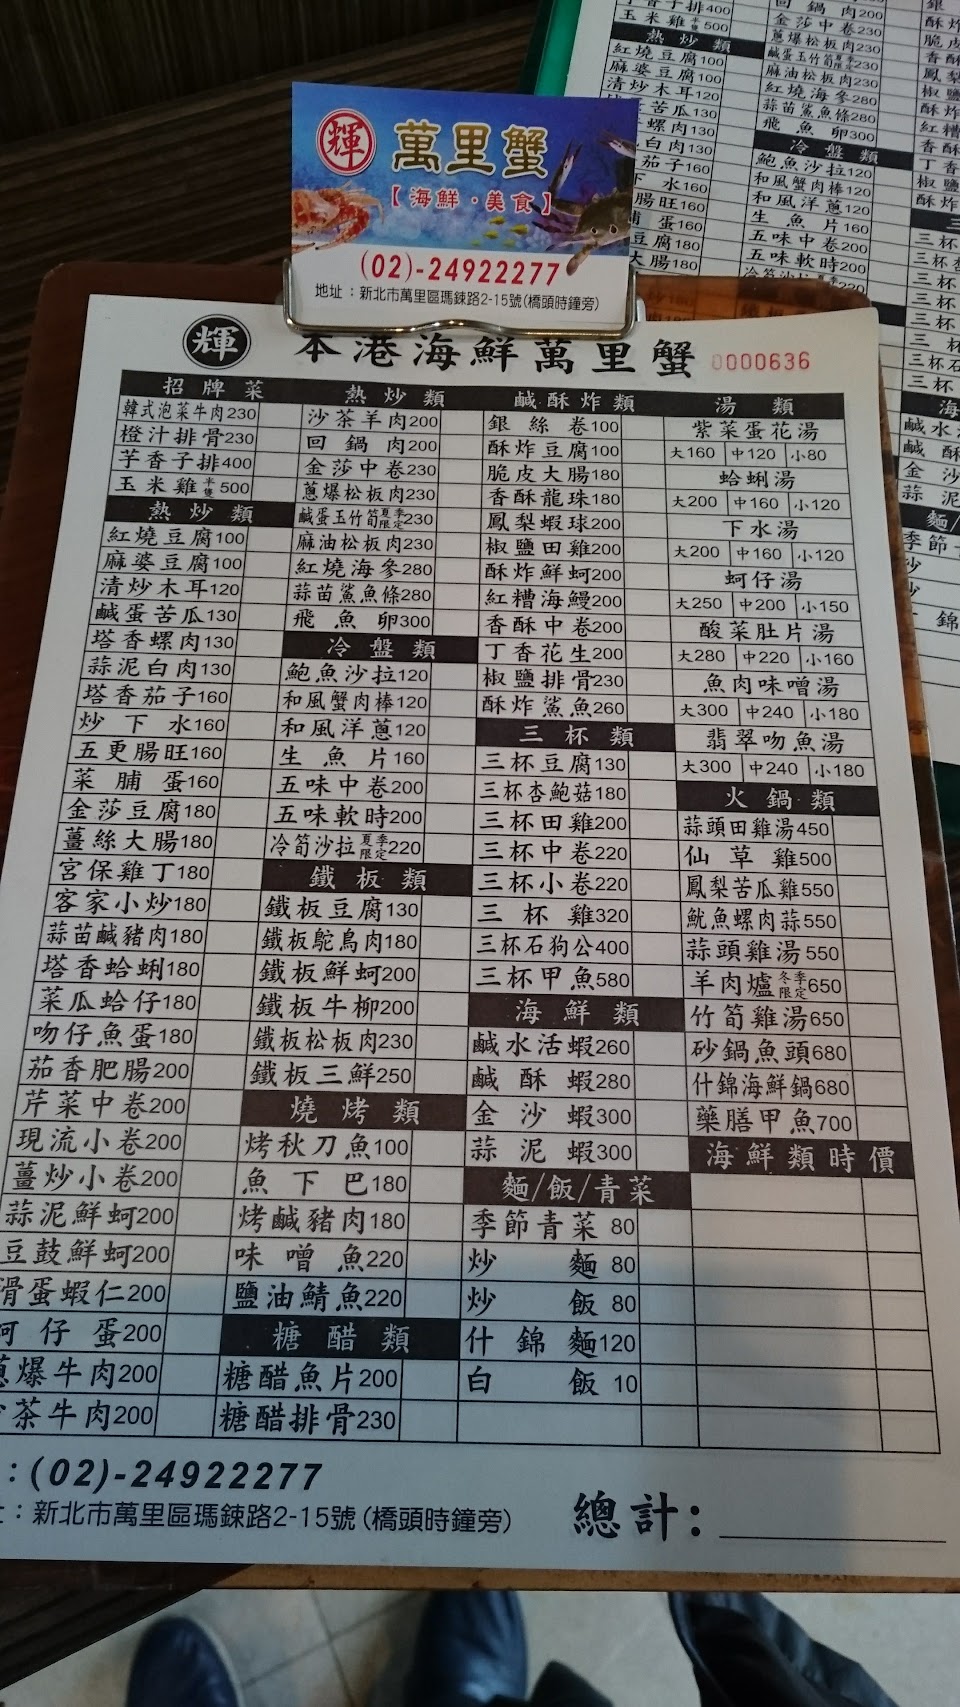 輝 萬里蟹
【海鮮·美食】
(02)-24922277
地址：新北市萬里區瑪鋉路2-15號(橋頭時鐘旁)
輝 本港海鮮萬里蟹 0000636
招牌菜
韓式泡菜牛肉230
橙汁排骨230
芋香子排400
玉米雞半隻500
熱炒類
紅燒豆腐100
麻婆豆腐100
清炒木耳120
鹹蛋苦瓜130
塔香螺肉130
蒜泥白肉130
塔香茄子160
炒下水160
五更腸旺160
菜脯蛋160
金莎豆腐180
薑絲大腸180
宮保雞丁180
客家小炒180
蒜苗鹹豬肉180
塔香蛤蜊180
菜瓜蛤仔180
吻仔魚蛋180
茄香肥腸200
芹菜中卷200
現流小卷200
薑炒小卷200
蒜泥鮮蚵200
豆鼓鮮蚵200
滑蛋蝦仁200
蚵仔蛋200
蔥爆牛肉200
茶牛肉200
熱炒類
沙茶羊肉200
回鍋肉200
金莎中卷230
蔥爆松板肉230
鹹蛋玉竹筍夏季限定230
麻油松板肉230
紅燒海參280
蒜苗鯊魚條280
飛魚卵300
冷盤類
鮑魚沙拉120
和風蟹肉棒120
和風洋蔥120
生魚片160
五味中卷200
五味軟時200
冷筍沙拉夏季限定220
鐵板類
鐵板豆腐130
鐵板鴕鳥肉180
鐵板鮮蚵200
鐵板牛柳200
鐵板松板肉230
鐵板三鮮250
燒烤類
烤秋刀魚100
魚下巴180
烤鹹豬肉180
味噌魚220
鹽油鯖魚220
糖醋類
糖醋魚片200
糖醋排骨230
鹹酥炸類
銀絲卷100
酥炸豆腐100
脆皮大腸180
香酥龍珠180
鳳梨蝦球200
椒鹽田雞200
酥炸鮮蚵200
紅糟海鰻200
香酥中卷200
丁香花生200
椒鹽排骨230
酥炸鯊魚260
三杯類
三杯豆腐130
三杯杏鮑菇180
三杯田雞200
三杯中卷220
三杯小卷220
三杯雞320
三杯石狗公400
三杯甲魚580
海鮮類
鹹水活蝦260
鹹酥蝦280
金沙蝦300
蒜泥蝦300
麵/飯/青菜
季節青菜 80
炒麵 80
炒飯 80
什錦麵120
白飯 10
湯類
紫菜蛋花湯
大160 中120 小80
蛤蜊湯
大200 中160 小120
下水湯
大200 中160 小120
蚵仔湯
大250 中200 小150
酸菜肚片湯
大280 中220 小160
魚肉味噌湯
大300 中240 小180
翡翠吻魚湯
大300 中240 小180
火鍋類
蒜頭田雞湯450
仙草雞500
鳳梨苦瓜雞550
魷魚螺肉蒜550
蒜頭雞湯550
羊肉爐冬季限定650
竹筍雞湯650
砂鍋魚頭680
什錦海鮮鍋680
藥膳甲魚700
海鮮類時價
：(02)-24922277
：新北市萬里區瑪鋉路2-15號(橋頭時鐘旁)
總計：